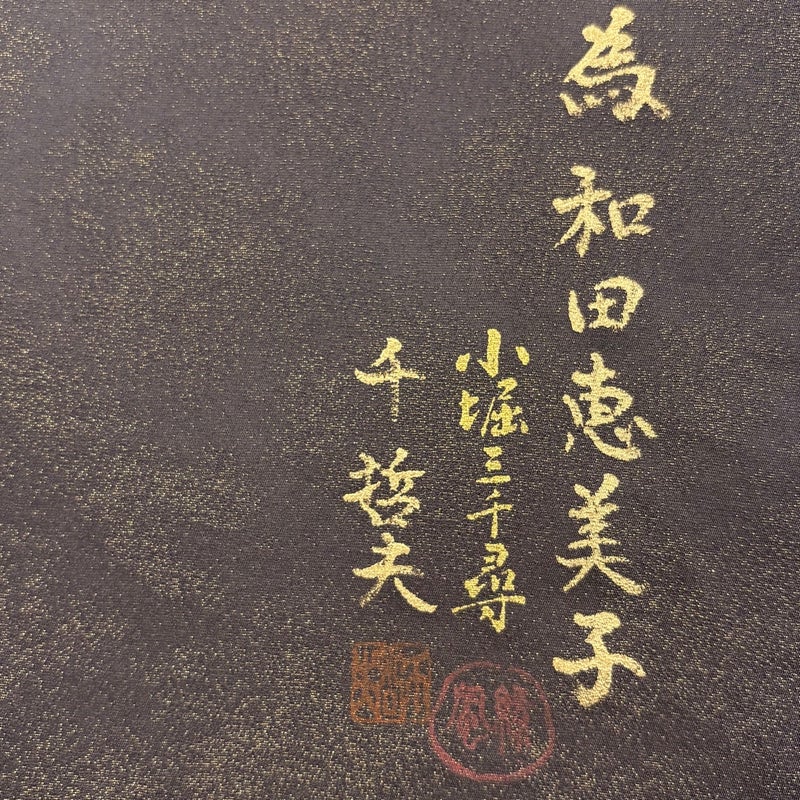 為和田恵美子
小堀三千尋
千哲夫